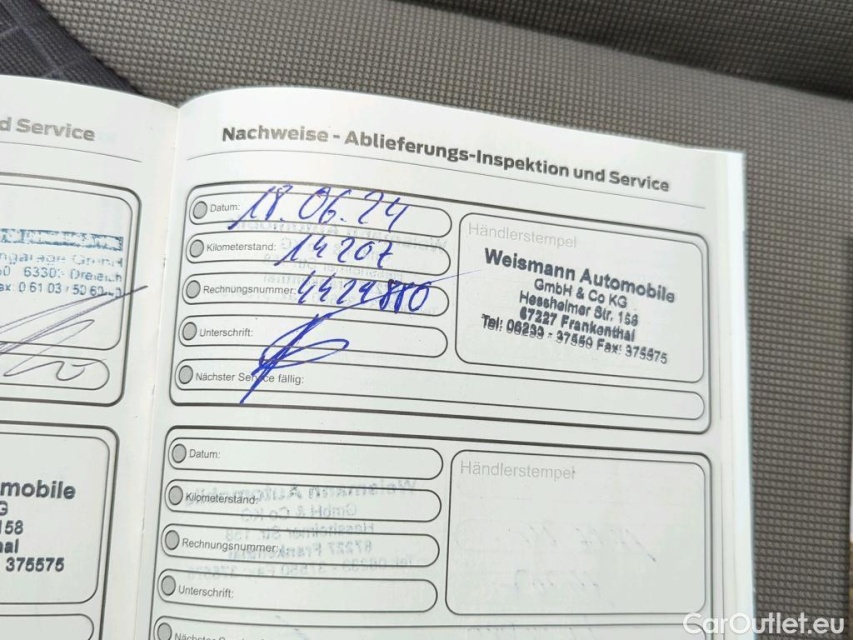 d Service
6330 Dreieich
ax 0 61 03 / 50 6
mobile
G
158
hal
375575
Nachweise - Ablieferungs-Inspektion und Service
Datum: 18.06.24
Kilometerstand: 14207
Rechnungsnummer: 4424880
Unterschrift:
Nächster Service fällig:
Händlerstempel
Weismann Automobile
GmbH & Co KG
Hessheimer Str. 158
67227 Frankenthal
Tel: 06233 - 37550 Fax: 375575
Datum:
Kilometerstand:
Rechnungsnummer:
Unterschrift:
Händlerstempel
CarOutlet.eu